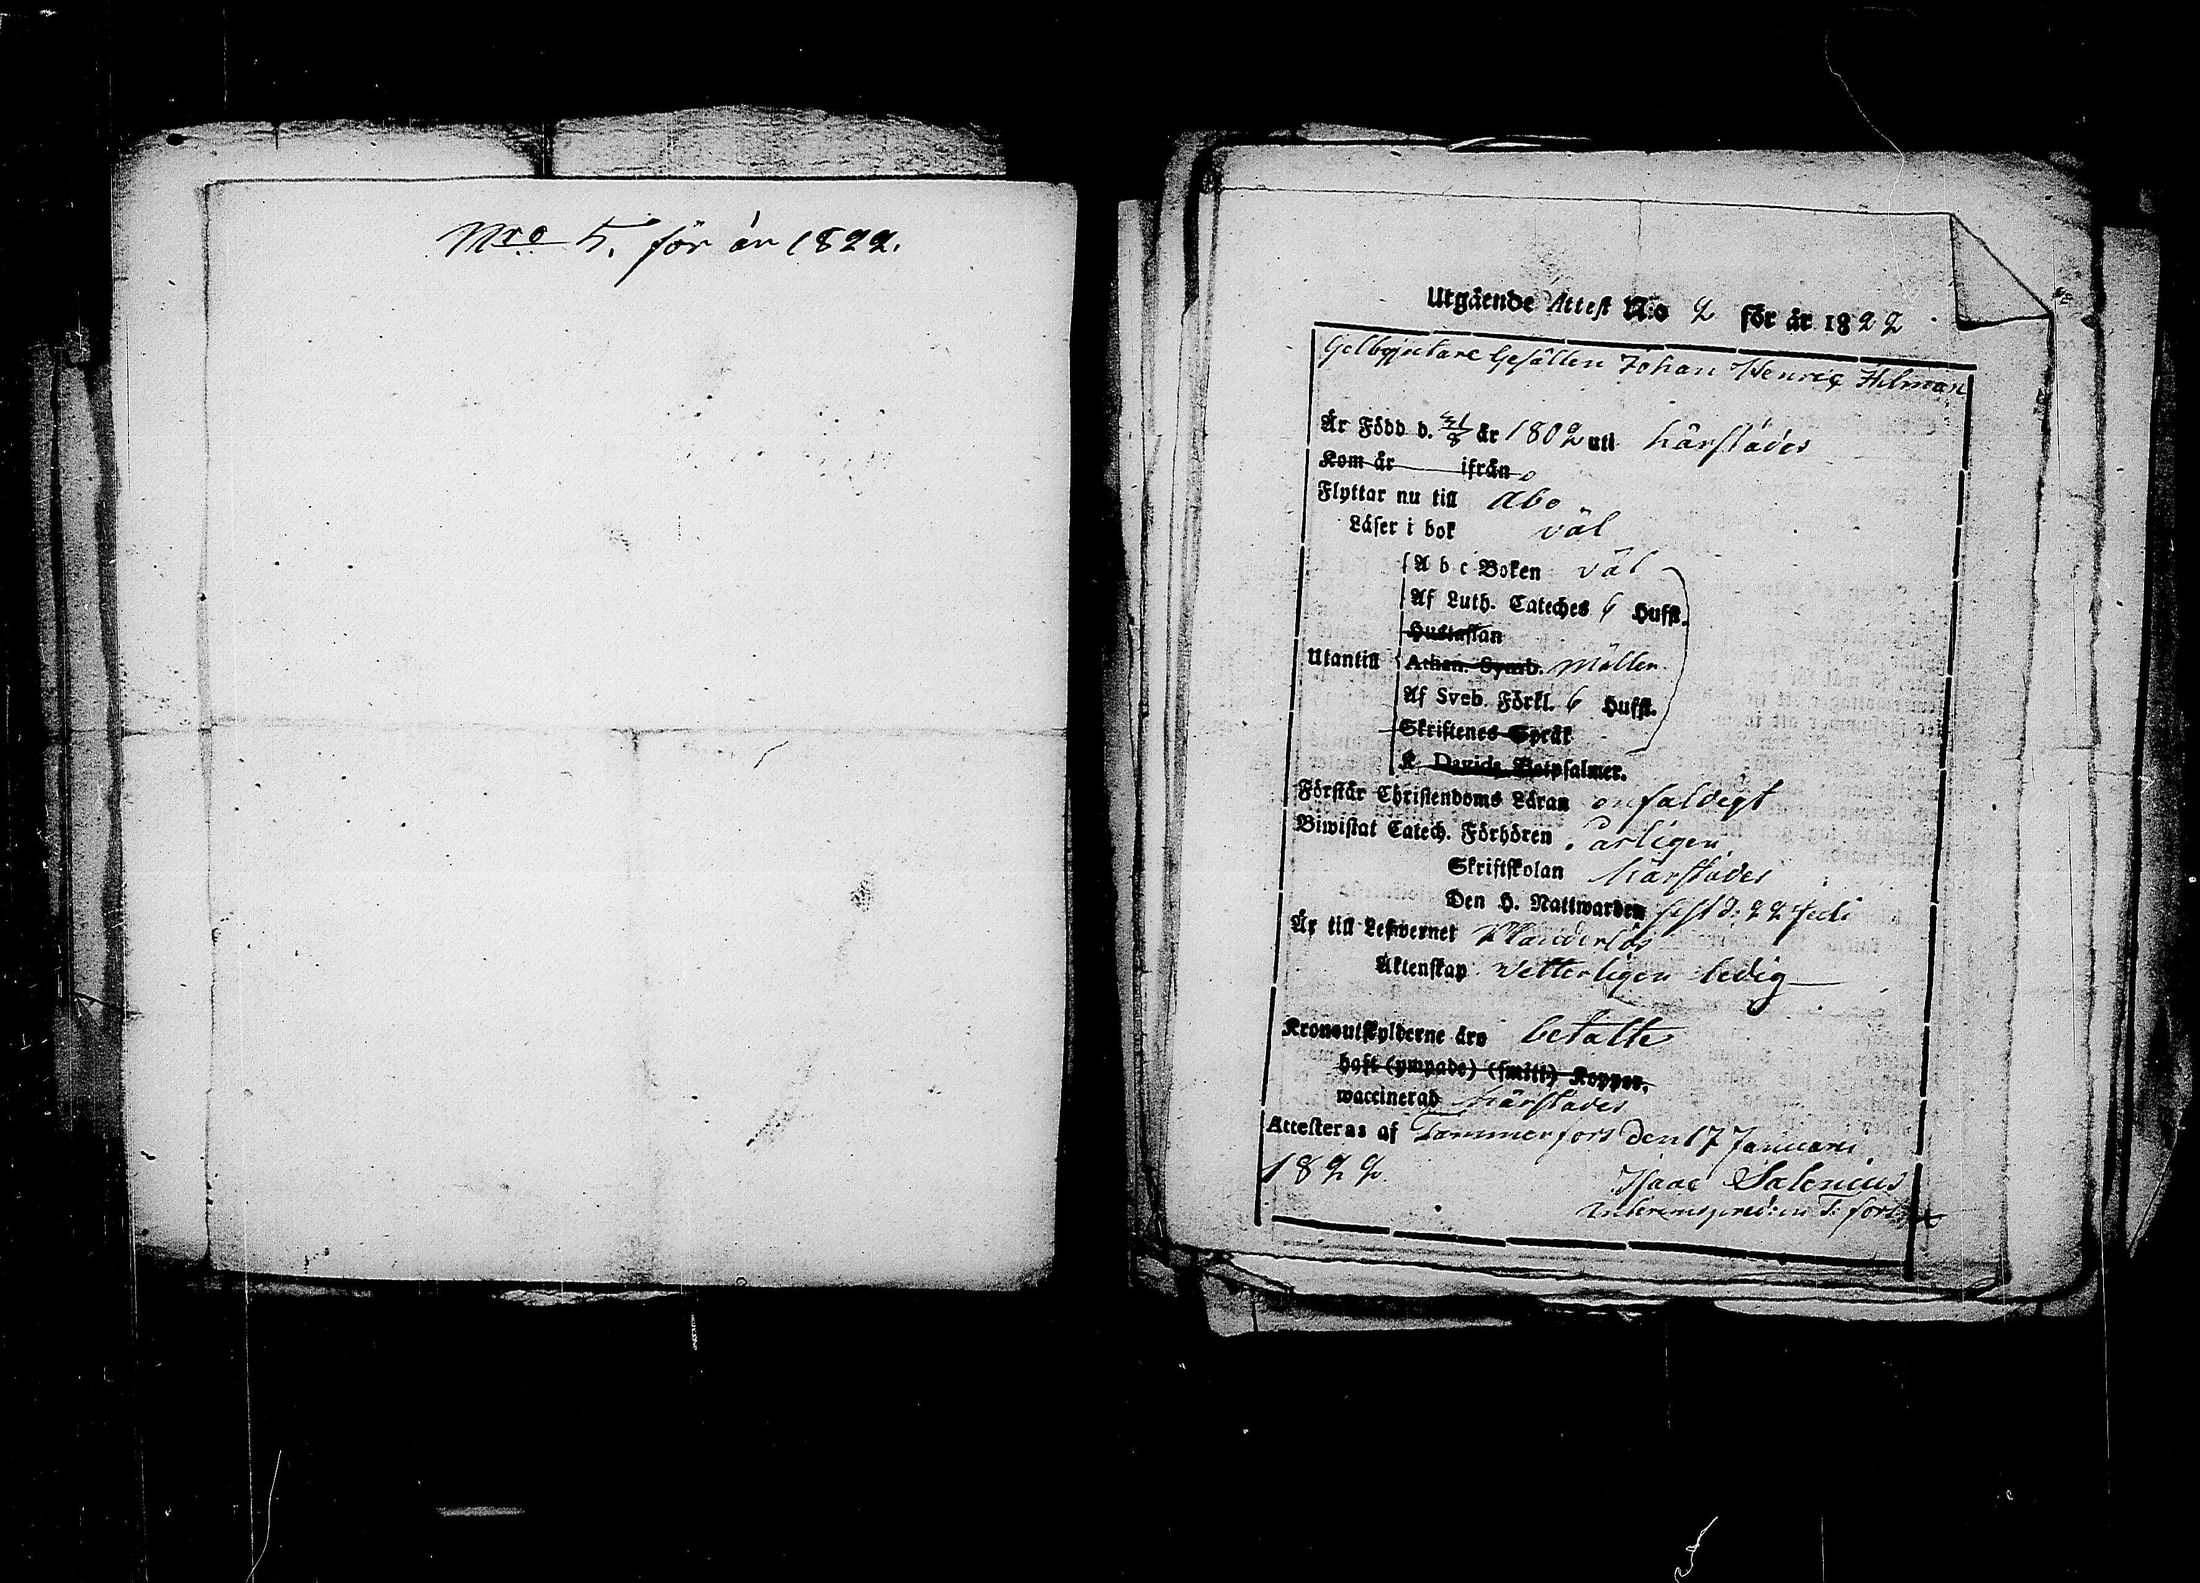 Nro 5. för år 1822.
Utgående Attest N:o 2 för år 1822
Gelbgjutare Gesällen Johan Henric Hilman
Är Född d. 31/8 år 1802 uti härstädes
Kom år ifrån
Flyttar nu till Åbo
Läser i bok väl
A b c Boken väl
Af Luth. Cateches 6 Hufst.
Hustaflan
Utantill Athan. Symb. Mållen
Af Sveb. Förkl. 6 Hufst.
Skriftenes Språk
K. Davids Botpsalmer.
Förstår Christendoms Läran enfaldigt
Biwistat Catech. Förhören årligen
Skriftskolan härstädes
Den H. Nattwarden sist d: 22 Juli
Är till Lefwernet Klanderlös
Äktenskap Vetterligen ledig
Kronoutskylderne äro betalte
haft (ympade) (smitt) Koppor.
waccinerad härstädes
Attesteras af Tammerfors den 17 Januarii
1822.
Isaac Salenius
Interimspred: in T: fors